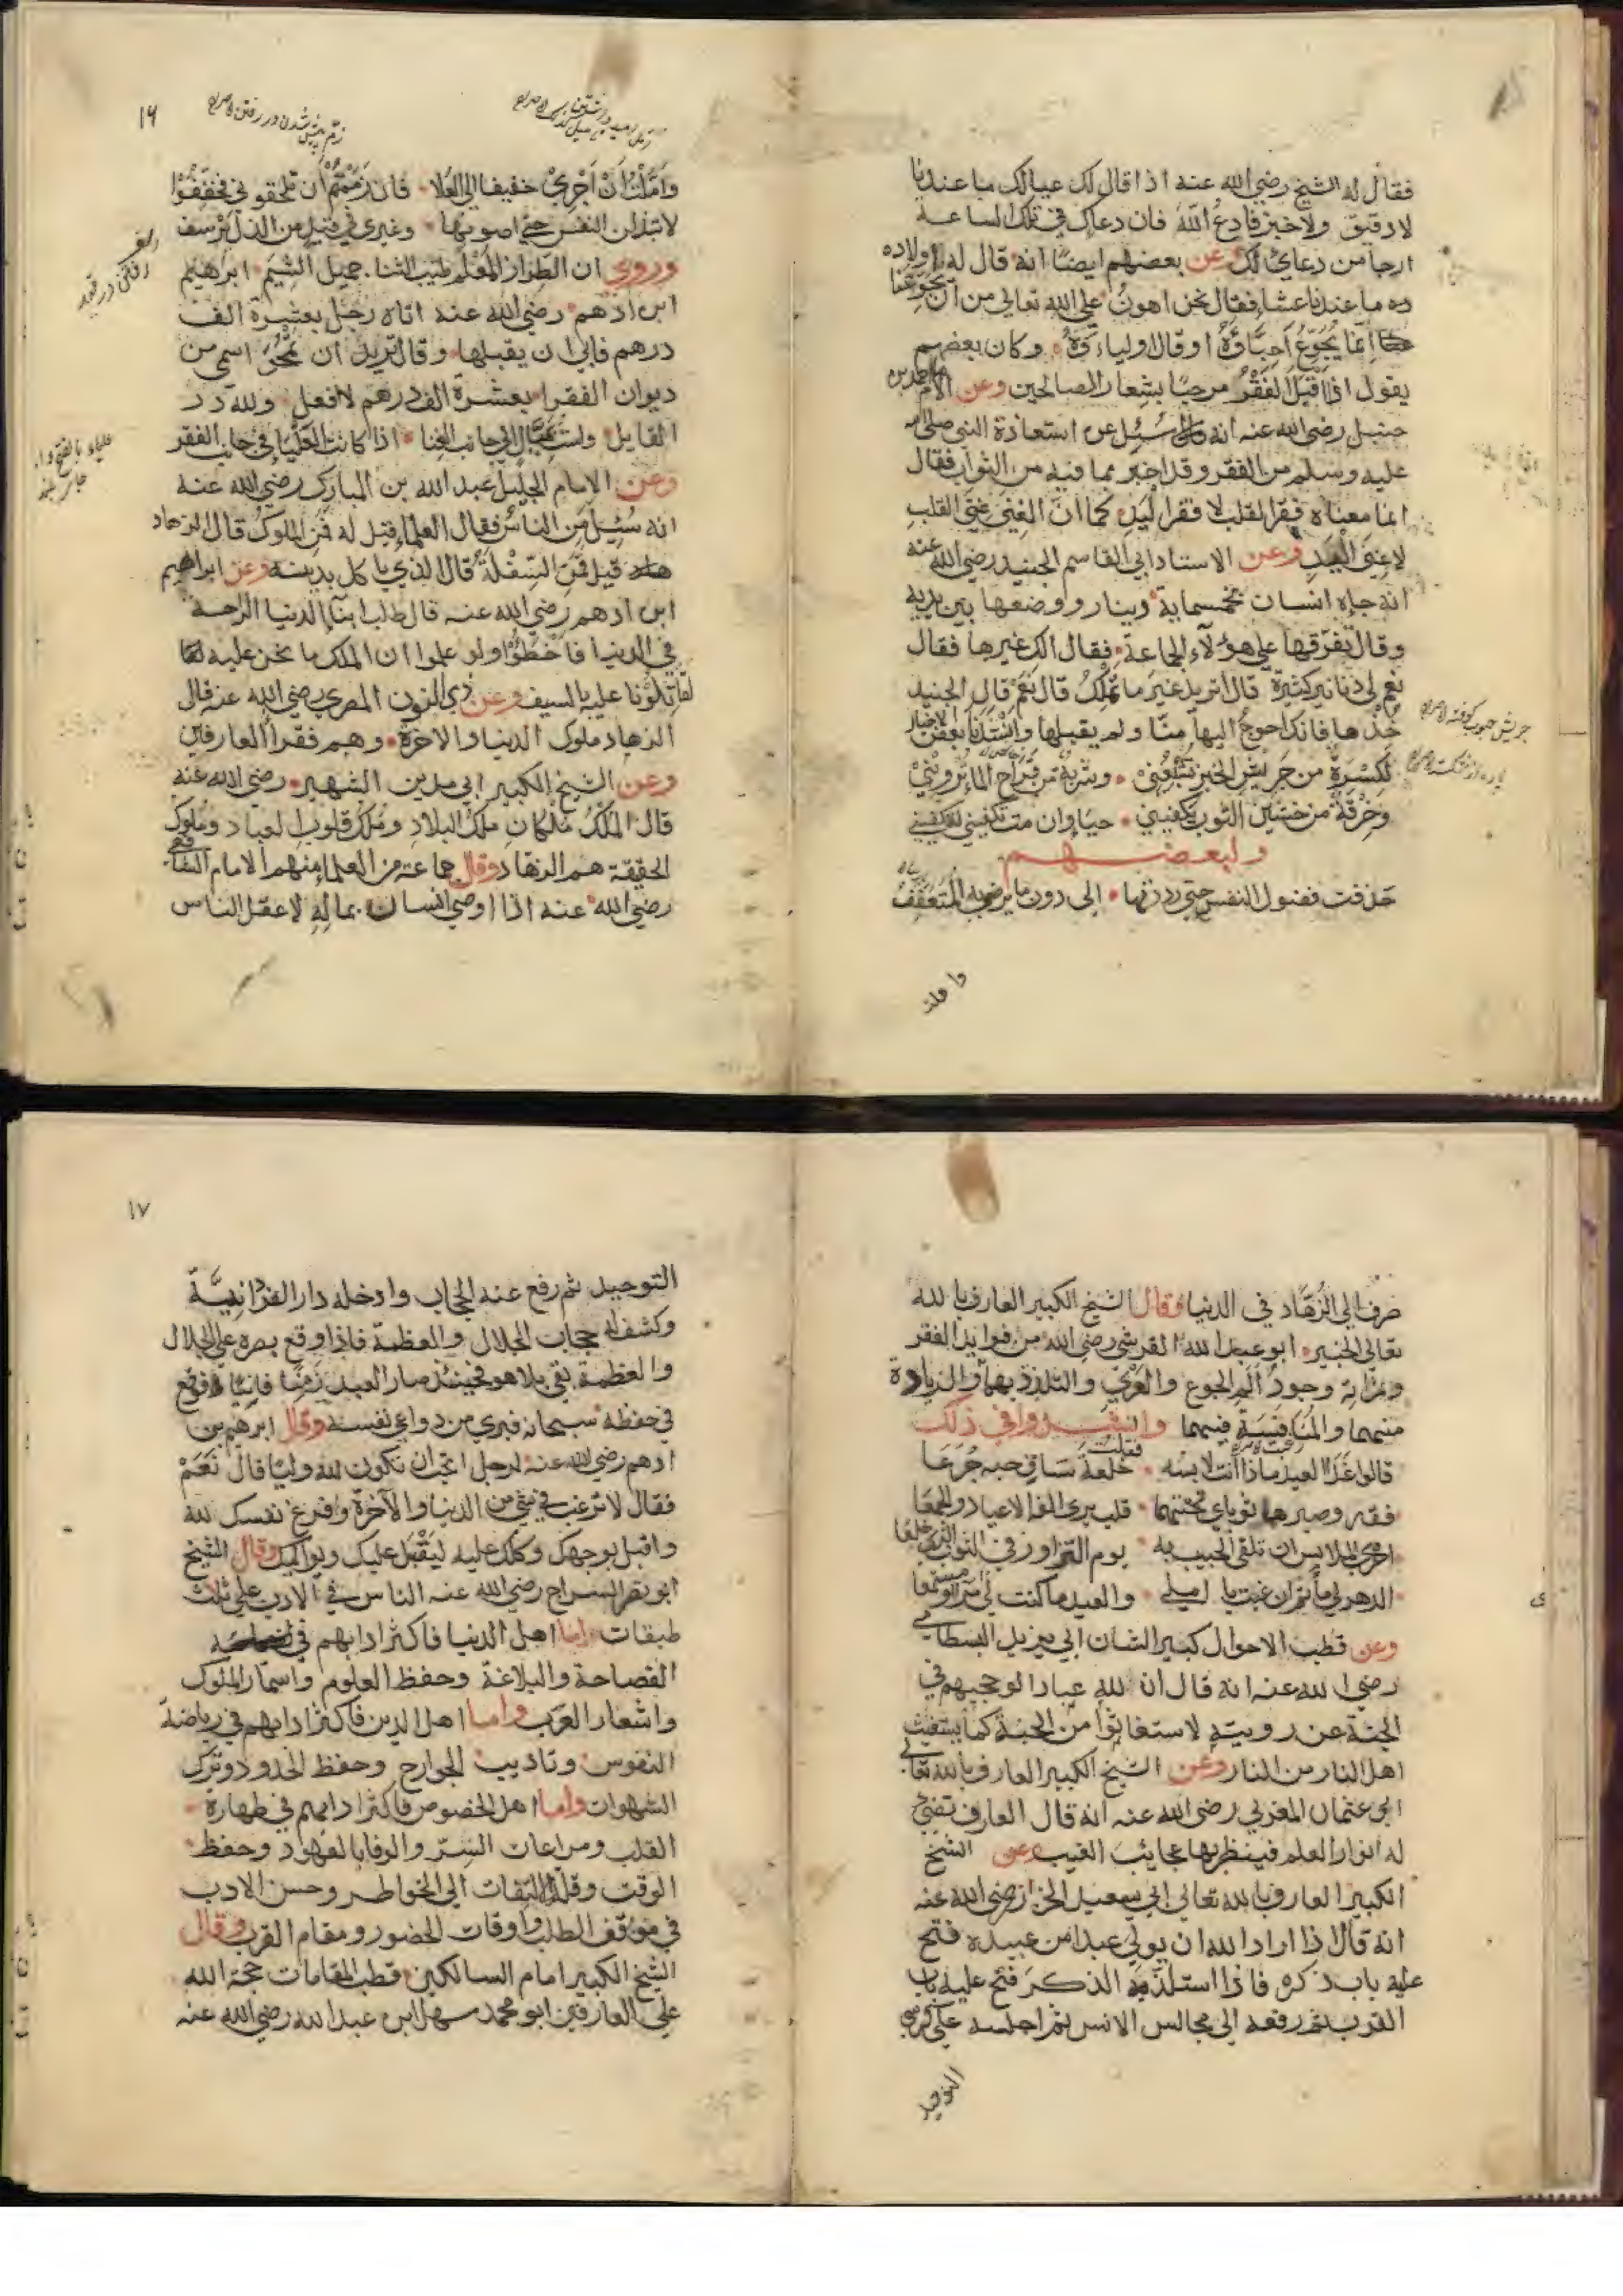 فقال له الشيخ رضي الله عنه اذا قال لك عيالك ما عندنا
لا دقيق ولا خبز فادع الله فان دعاك في تلك الساعة
ارجا من دعاي لك وعن بعضهم ايضا انه قال له اولاده
ده ما عندنا عشا فقال نحن اهون على الله تعالى من ان يجوعنا
انما يجوع احباؤه او قال اولياءه وكان بعضهم
يقول اذا اقبل الفقر مرحبا بشعار الصالحين وعن الامام احمد بن
حنبل رضي الله عنه انه سئل عن استعاذة النبي صلى الله
عليه وسلم من الفقر وقد اخبر مما فيه من الثواب فقال
انما معناه فقر القلب لا فقر اليد كما ان الغني غني القلب
لا غني اليد وعن الاستاد ابي القاسم الجنيد رضي الله عنه
انه جاه انسان بخمسماية دينار ووضعها بين يديه
وقال تفرقها على هؤلاء الجماعة فقال الك غيرها فقال
نعم لي دنانير كثيرة قال اتريد غير ما تملك قال نعم قال الجنيد
خذها فانك احوج اليها منا ولم يقبلها وانشدنا بعض الاخيار
لكسرة من جريش الخبز تشبعني وشربة من قراح الماء ترويني
وخرقة من خشين الثوب تكفيني حيا وان مت تكفيني لتكفيني
ولبعضهم
حذفت فضول النفس حتى رددتها الى دون ما يرضى به المتعفف
واملت
١٦
واملت ان اجري خفيفا الى العلا فان رمتم ان تلحقوني فخففوا
لابتذلن النفس حتى اصونها وغيري في قيد من الذل يرسف
وروي ان الطراز المعلم طيب الثنا جميل الشيم ابراهيم
ابن ادهم رضي الله عنه اتاه رجل بعشرة الف
درهم فابى ان يقبلها وقال تريد ان تمحو اسمي من
ديوان الفقرا بعشرة الف درهم لا افعل ولله در
القايل ولست بميال الى جانب الغنا اذا كانت العليا في جانب الفقر
وعن الامام الجليل عبد الله بن المبارك رضي الله عنه
انه سئل من الناس فقال العلما قيل له فمن الملوك قال الزهاد
قيل فمن السفلة قال الذي ياكل بدينه وعن ابراهيم
ابن ادهم رضي الله عنه قال طلب ابنا الدنيا الراحة
في الدنيا فاخطؤا ولو علموا ان الملك ما نحن عليه
لقاتلونا عليه بالسيف وعن ذي النون المصري رضي الله عنه قال
الزهاد ملوك الدنيا والاخرة وهم فقرا العارفين
وعن الشيخ الكبير ابي مدين الشهير رضي الله عنه
قال الملك ملكان ملك البلاد وملك قلوب العباد وملوك
الحقيقة هم الزهاد وقال جماعة من العلما منهم الامام الشافعي
رضي الله عنه اذا اوصى انسان بماله لاعقل الناس
صرف الى الزهاد في الدنيا وقال الشيخ الكبير العارف بالله
تعالى الخبير ابو عبد الله القرشي رضي الله من فوايد الفقر
وثمراته وجود الم الجوع والعري والتلذذ بهما والزيادة
منهما والمنافسة فيهما وانشدوا في ذلك
قالوا غدا العيد ماذا انت لابسه فقلت خلعة ساق حبه جرعا
فقر وصبر هما ثوباي تحتهما قلب يرى الفه الاعياد والجمعا
احرى الملابس ان تلقى الحبيب به يوم التزاور في الثوب الذي خلعا
الدهر لي ماتم ان غبت يا املي والعيد ما كنت لي مرا ومستمعا
وعن قطب الاحوال كبير الشان ابي يزيد البسطامي
رضي الله عنه انه قال ان لله عبادا لو حجبهم في
الجنة عن رويته لاستغاثوا من الجنة كما يستغيث
اهل النار من النار وعن الشيخ الكبير العارف بالله تعالى
ابي عثمان المغربي رضي الله عنه انه قال العارف تضيئ
له انوار العلم فينظر بها عجائب الغيب وعن الشيخ
الكبير العارف بالله تعالى ابي سعيد الخراز رضي الله عنه
انه قال اذا اراد الله ان يولي عبدا من عبيده فتح
عليه باب ذكره فاذا استلذ به الذكر فتح عليه باب
القرب ثم رفعه الى مجالس الانس ثم اجلسه على كرسي
التوحيد
١٧
التوحيد ثم رفع عنه الحجاب وادخله دار الفردانية
وكشف له حجاب الجلال والعظمة فاذا وقع بصره على الجلال
والعظمة بقي بلا هو فحينئذ صار العبد زمنا فانيا فوقع
في حفظه سبحانه فبري من دواعي نفسه وقال ابرهيم بن
ادهم رضي الله عنه لرجل اتحب ان تكون لله وليا قال نعم
فقال لا ترغب في شي من الدنيا والآخرة وفرغ نفسك لله
واقبل بوجهك وكلك عليه ليقبل عليك ويواليك وقال الشيخ
ابو نصر السراج رضي الله عنه الناس في الادب على ثلاث
طبقات اما اهل الدنيا فاكثر ادابهم في
الفصاحة والبلاغة وحفظ العلوم واسمار الملوك
واشعار العرب واما اهل الدين فاكثر ادابهم في رياضة
النفوس وتاديب الجوارح وحفظ الحدود وترك
الشهوات واما اهل الخصوص فاكثر ادابهم في طهارة
القلب ومراعات السر والوفا بالعهود وحفظ
الوقت وقلة التفات الى الخواطر وحسن الادب
في موقف الطلب واوقات الحضور ومقام القرب وقال
الشيخ الكبير امام السالكين قطب المقامات حجة الله
على العارفين ابو محمد سهل ابن عبد الله رضي الله عنه